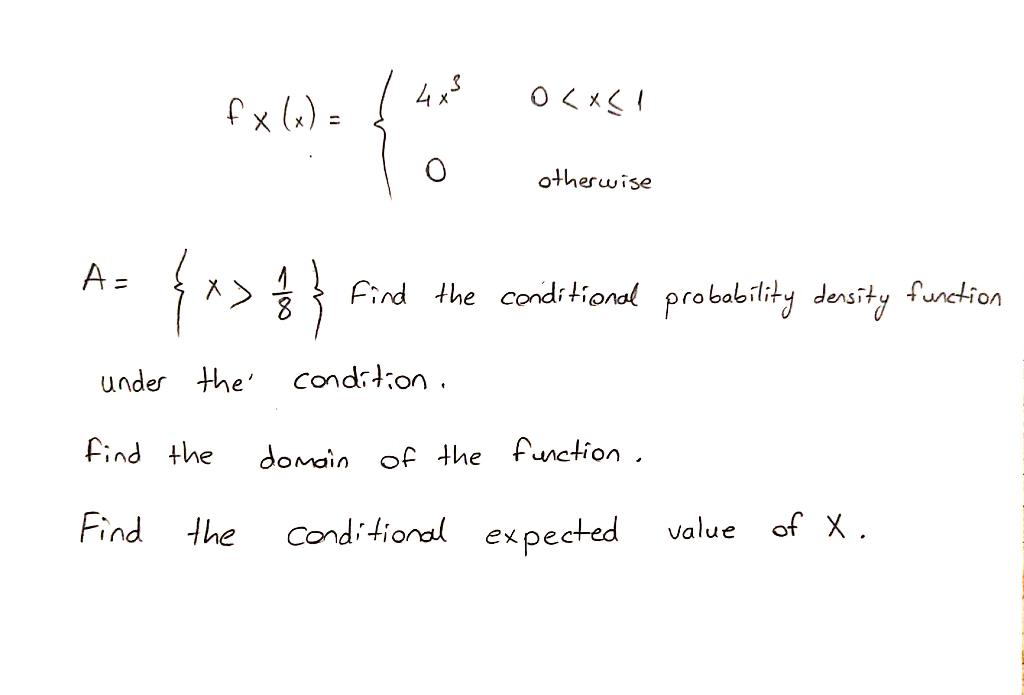 fx(x) = { 4x³ 0 < x ≤ 1
0 otherwise
A = { x > 1/8 } Find the conditional probability density function
under the' condition.
find the domain of the function.
Find the conditional expected value of X.